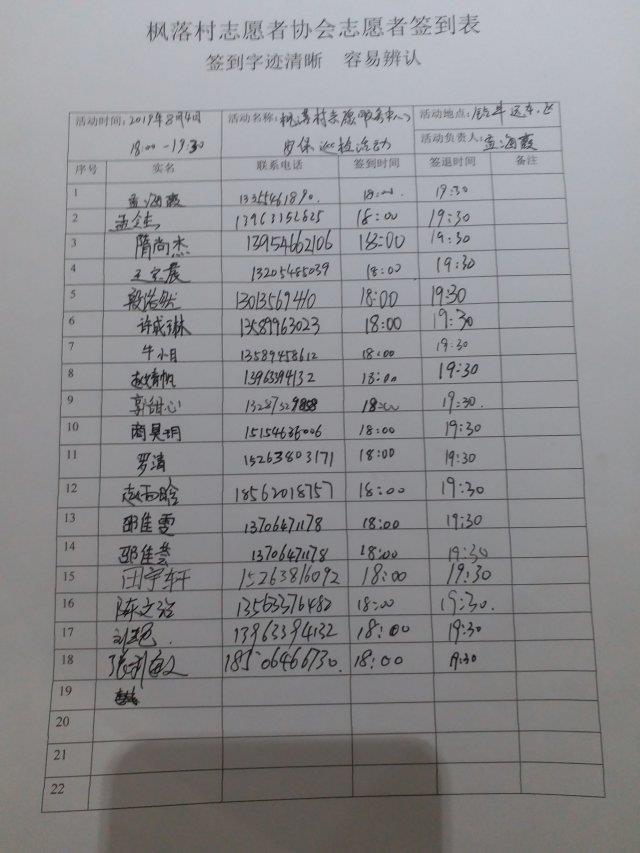 枫落村志愿者协会志愿者签到表
签到字迹清晰 容易辨认
活动时间：2019年8月4日 18:00-19:30 活动名称：枫落村志愿服务中心 安保巡检活动 活动地点：
活动负责人：孟海霞
序号 实名 联系电话 签到时间 签退时间 备注
1 孟海霞 19:30
2 13963152625 18:00 19:30
3 隋尚杰 13954662106 18:00 19:30
4 13205485039 18:00 19:30
5 18:00 19:30
6 许成琳 13589963023 18:00 19:30
7 牛小月 13589458612 18:00 19:30
8 18:00 19:30
9 郭甜心 18:00 19:30.
10 商昊玥 15154636006 18:00 19:30
11 罗清 15263803171 18:00 19:30
12 赵雨晗 18562018757 18:00 19:30
13 邵佳雯 13706471178 18:00 19:30
14 邵佳荟 13706471178 18:00 19:30
15 田宇轩 15263816092 18:00 19:30
16 陈文治 13563376482 18:00 19:30.
17 13963394132 18:00 19:30
18 18506466730. 18:00 19:30
19
20
21
22